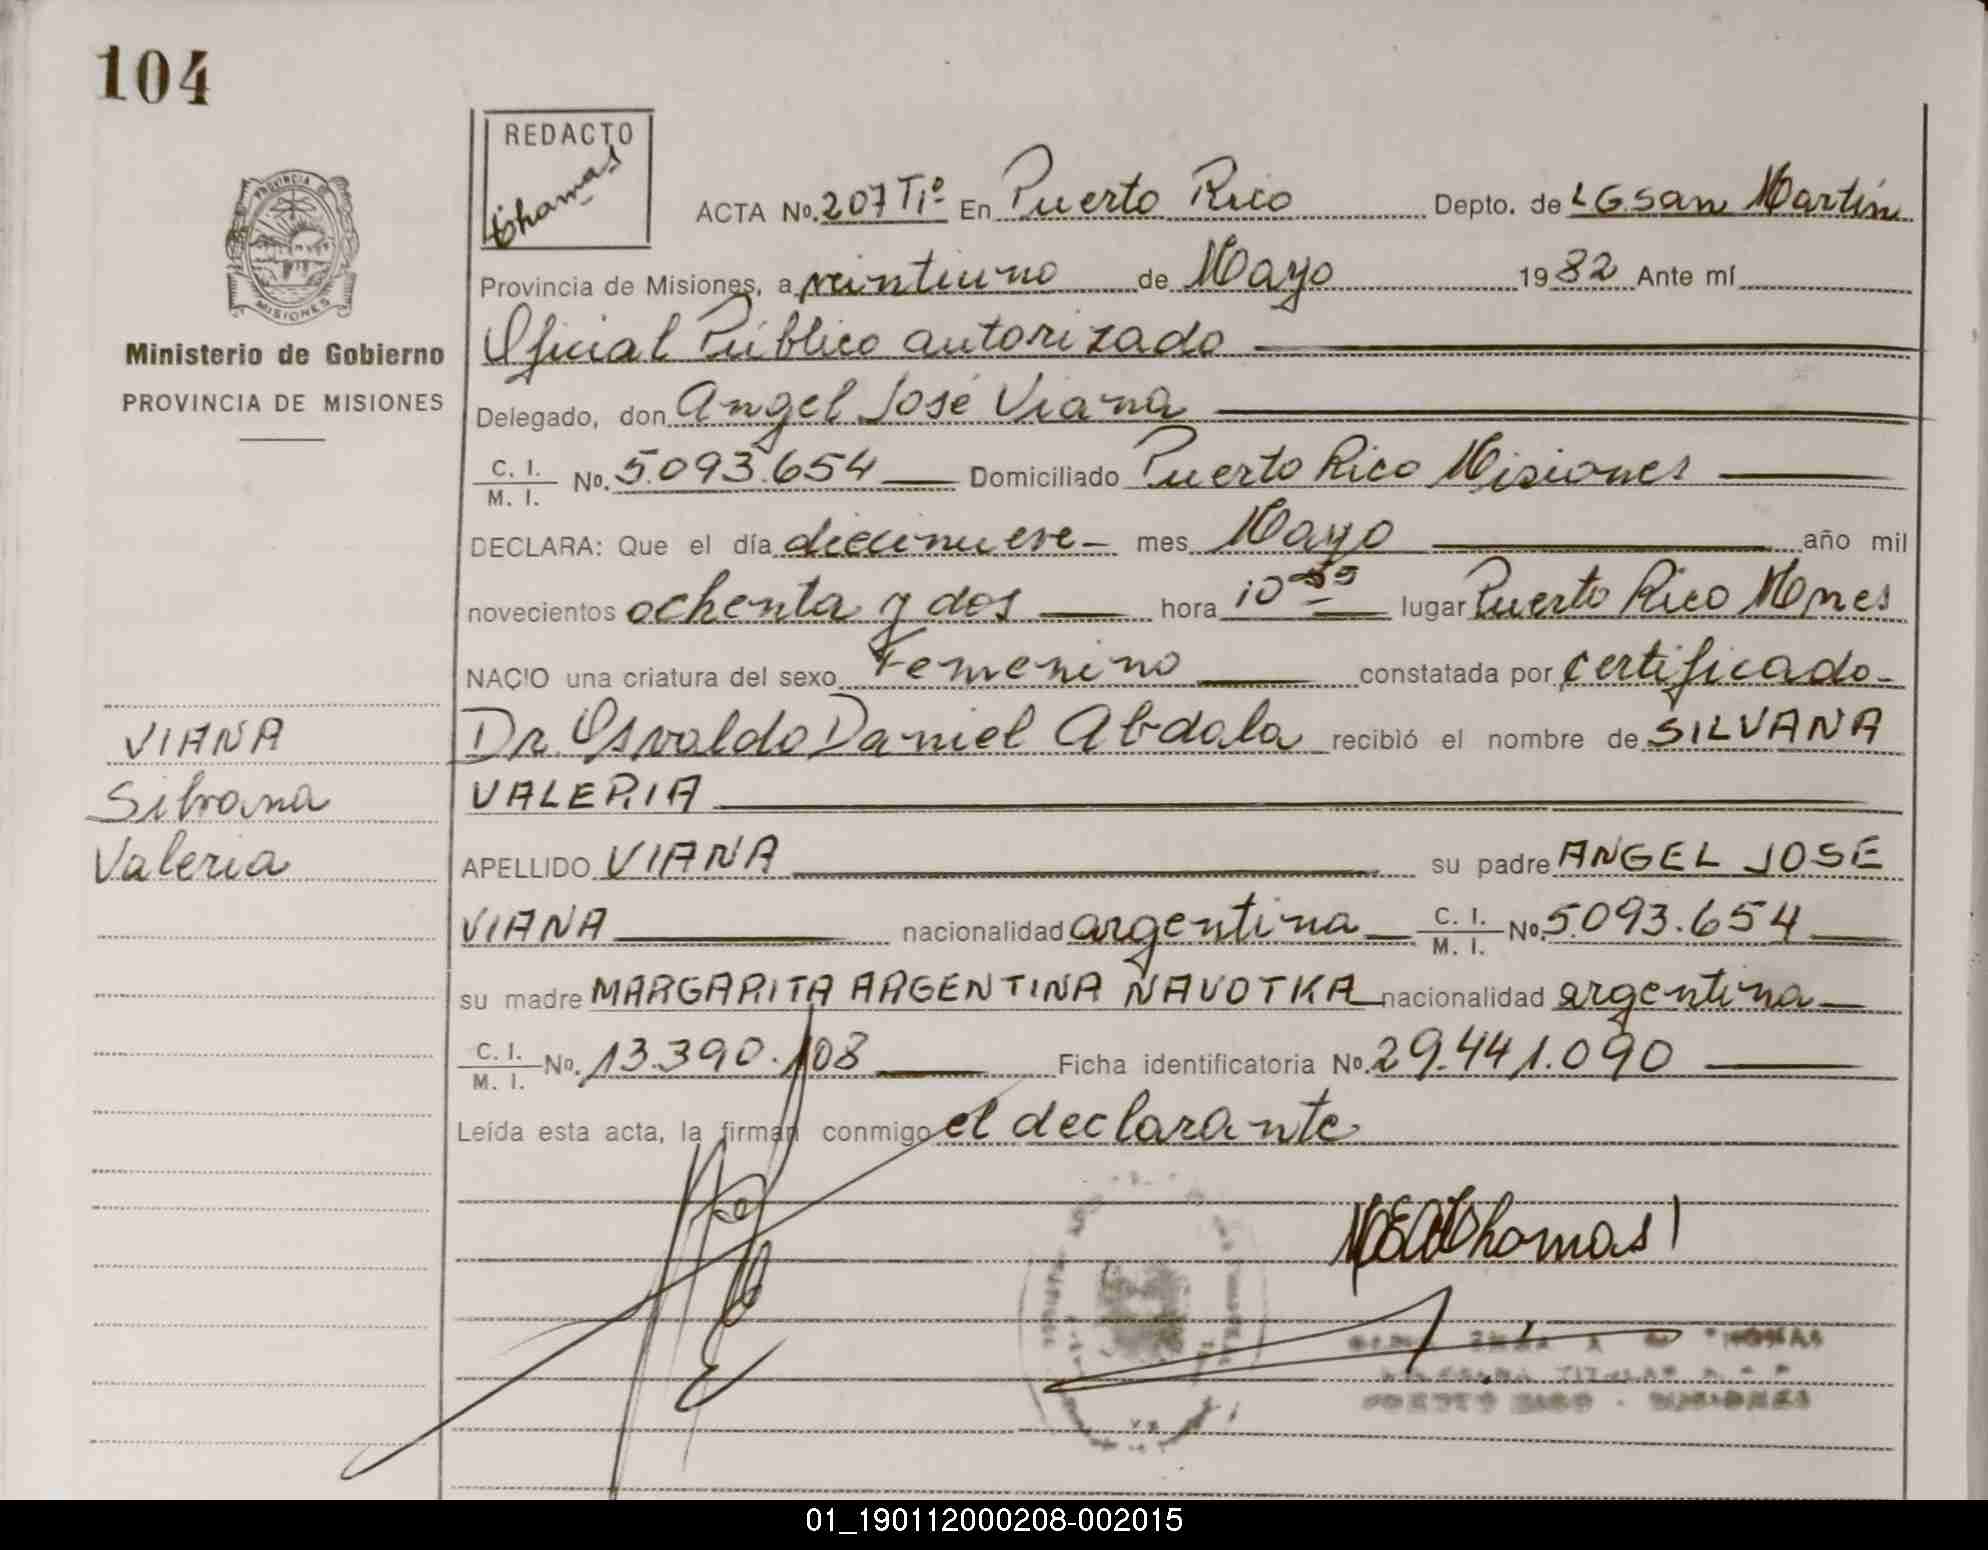 104
REDACTO
Thomas
PROVINCIA DE
MISIONES
Ministerio de Gobierno
PROVINCIA DE MISIONES
ACTA No. 207 Tiº En Puerto Rico Depto. de L G San Martín
Provincia de Misiones, a veintiuno de Mayo 1982 Ante mí
Oficial Público autorizado
Delegado, don Angel José Viana
C. I. / M. I. No. 5.093.654 Domiciliado Puerto Rico Misiones
DECLARA: Que el día diecinueve mes Mayo año mil
novecientos ochenta y dos hora 10 lugar Puerto Rico Mnes
NACIO una criatura del sexo Femenino constatada por certificado
Dr. Osvaldo Daniel Abdala recibió el nombre de SILVANA
VALERIA
APELLIDO VIANA su padre ANGEL JOSE
VIANA nacionalidad argentina C. I. / M. I. No. 5.093.654
su madre MARGARITA ARGENTINA NAVOTKA nacionalidad argentina
C. I. / M. I. No. 13.390.108 Ficha identificatoria No. 29.441.090
Leída esta acta, la firman conmigo el declarante
VIANA
Silvana
Valeria
Thomas
01_190112000208-002015